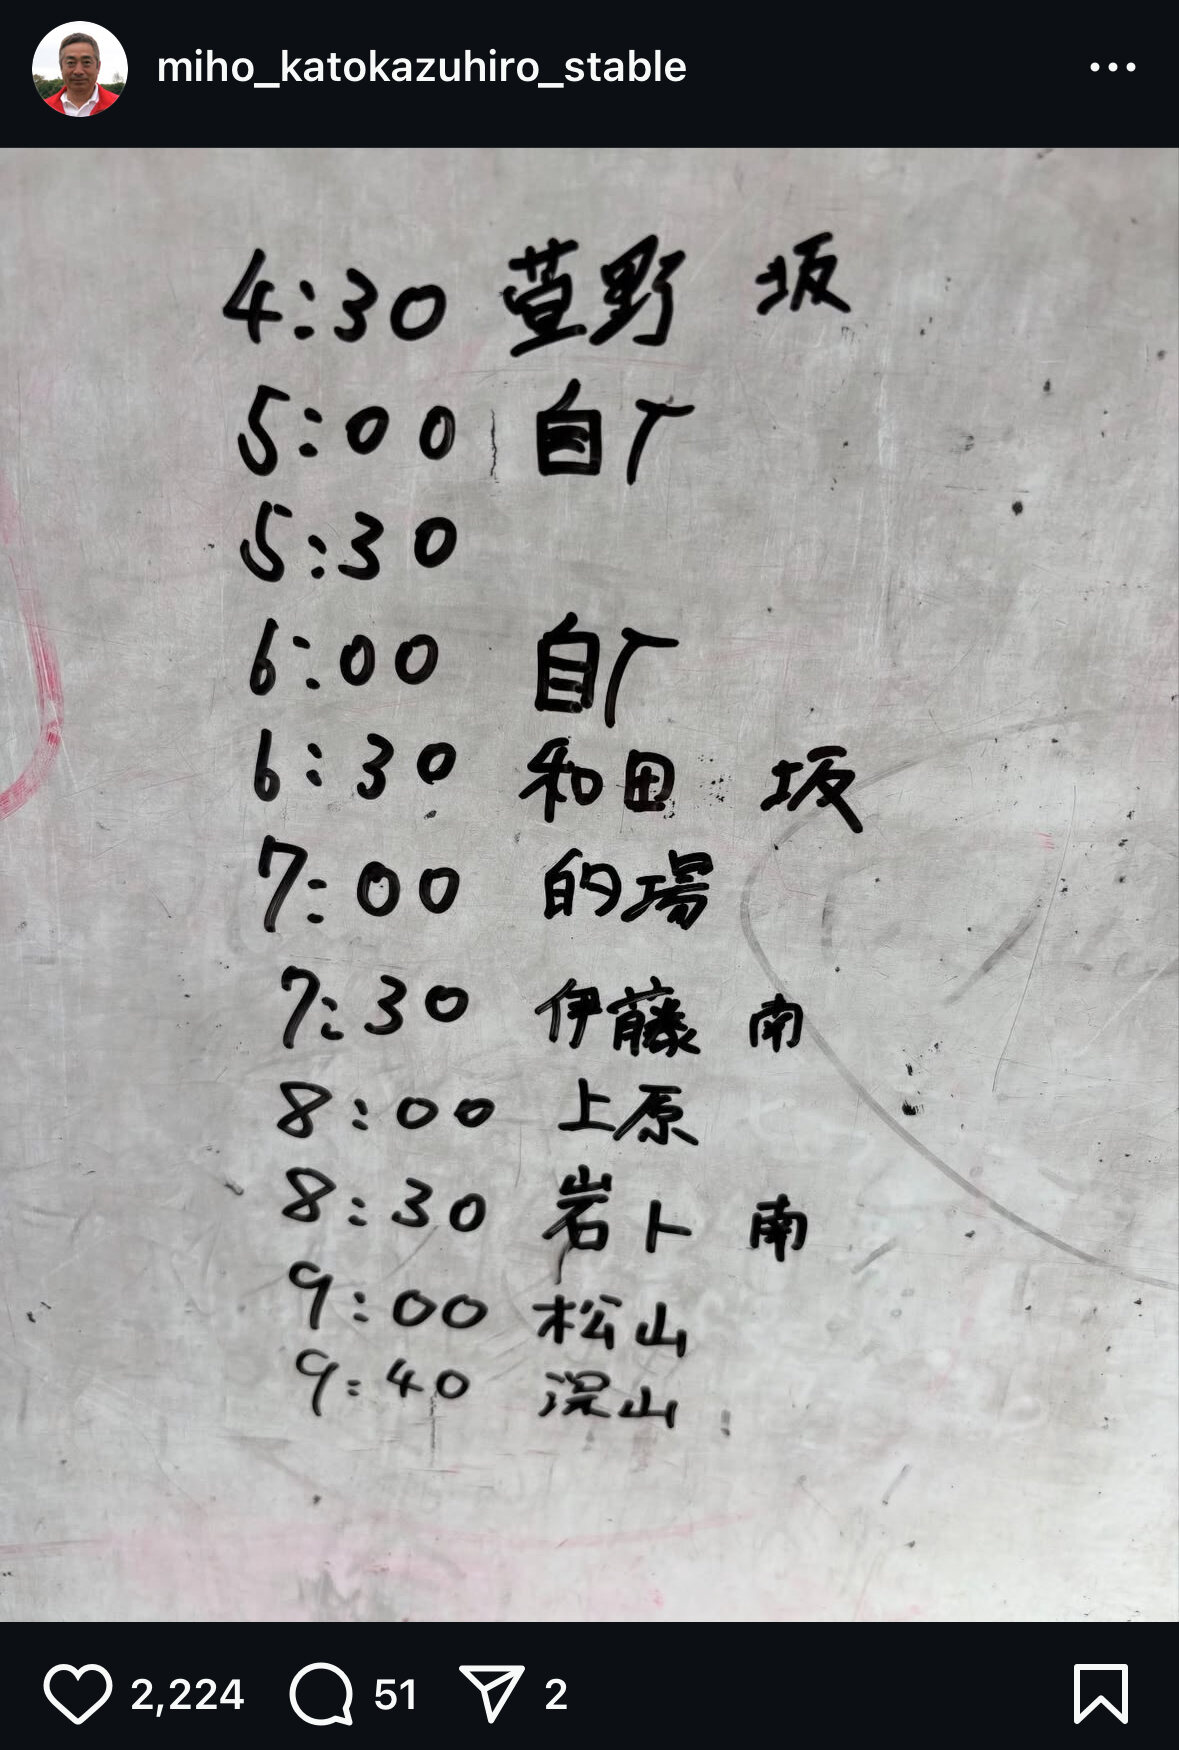 miho_katokazuhiro_stable
4:30 萱野 坂
5:00 自厂
5:30
6:00 自厂
6:30 和田 坂
7:00 的場
7:30 伊藤 南
8:00 上原
8:30 岩下 南
9:00 松山
9:40 深山
2,224 51 2